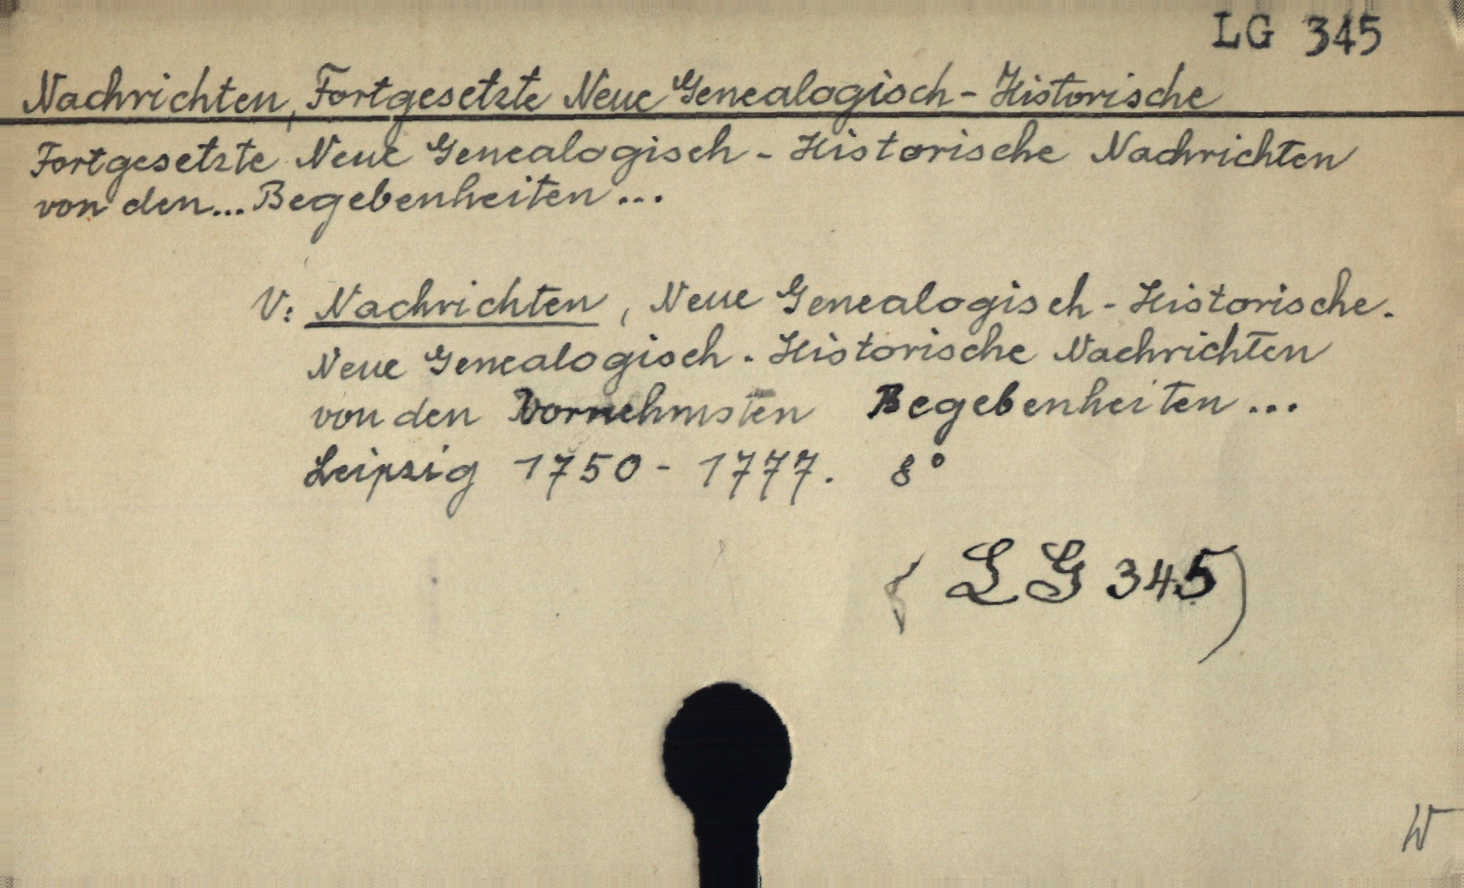 LG 345
Nachrichten, Fortgesetzte Neue Genealogisch-Historische
Fortgesetzte Neue Genealogisch-Historische Nachrichten
von den... Begebenheiten...
V: Nachrichten, Neue Genealogisch-Historische.
Neue Genealogisch-Historische Nachrichten
von den Vornehmsten Begebenheiten...
Leipzig 1750-1777. 8°
(LG 345)
W